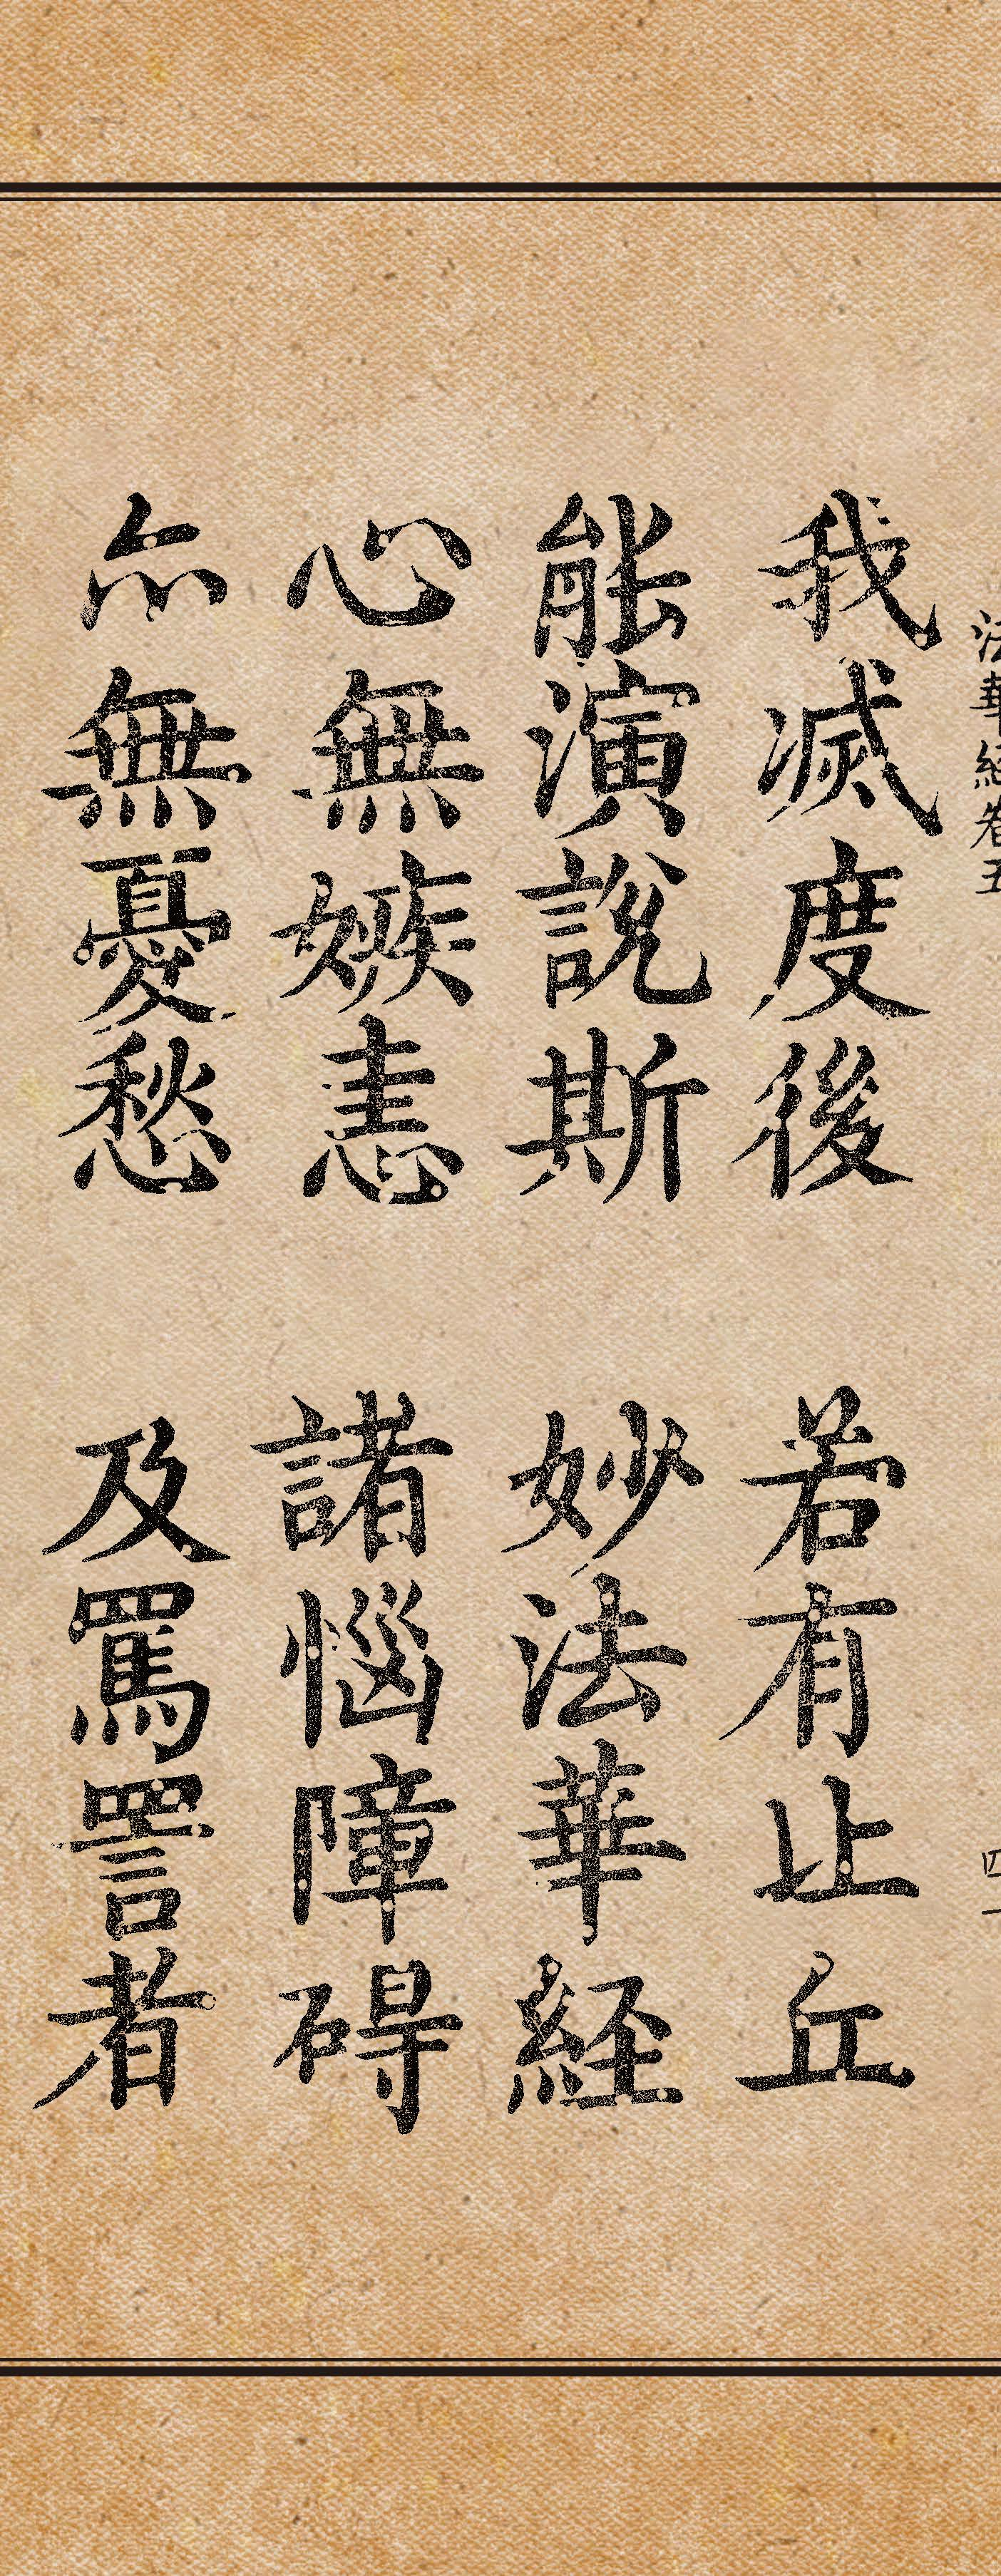 法華経卷五
我滅度後　若有比丘
能演說斯　妙法華経
心無嫉恚　諸惱障碍
亦無憂愁　及罵詈者